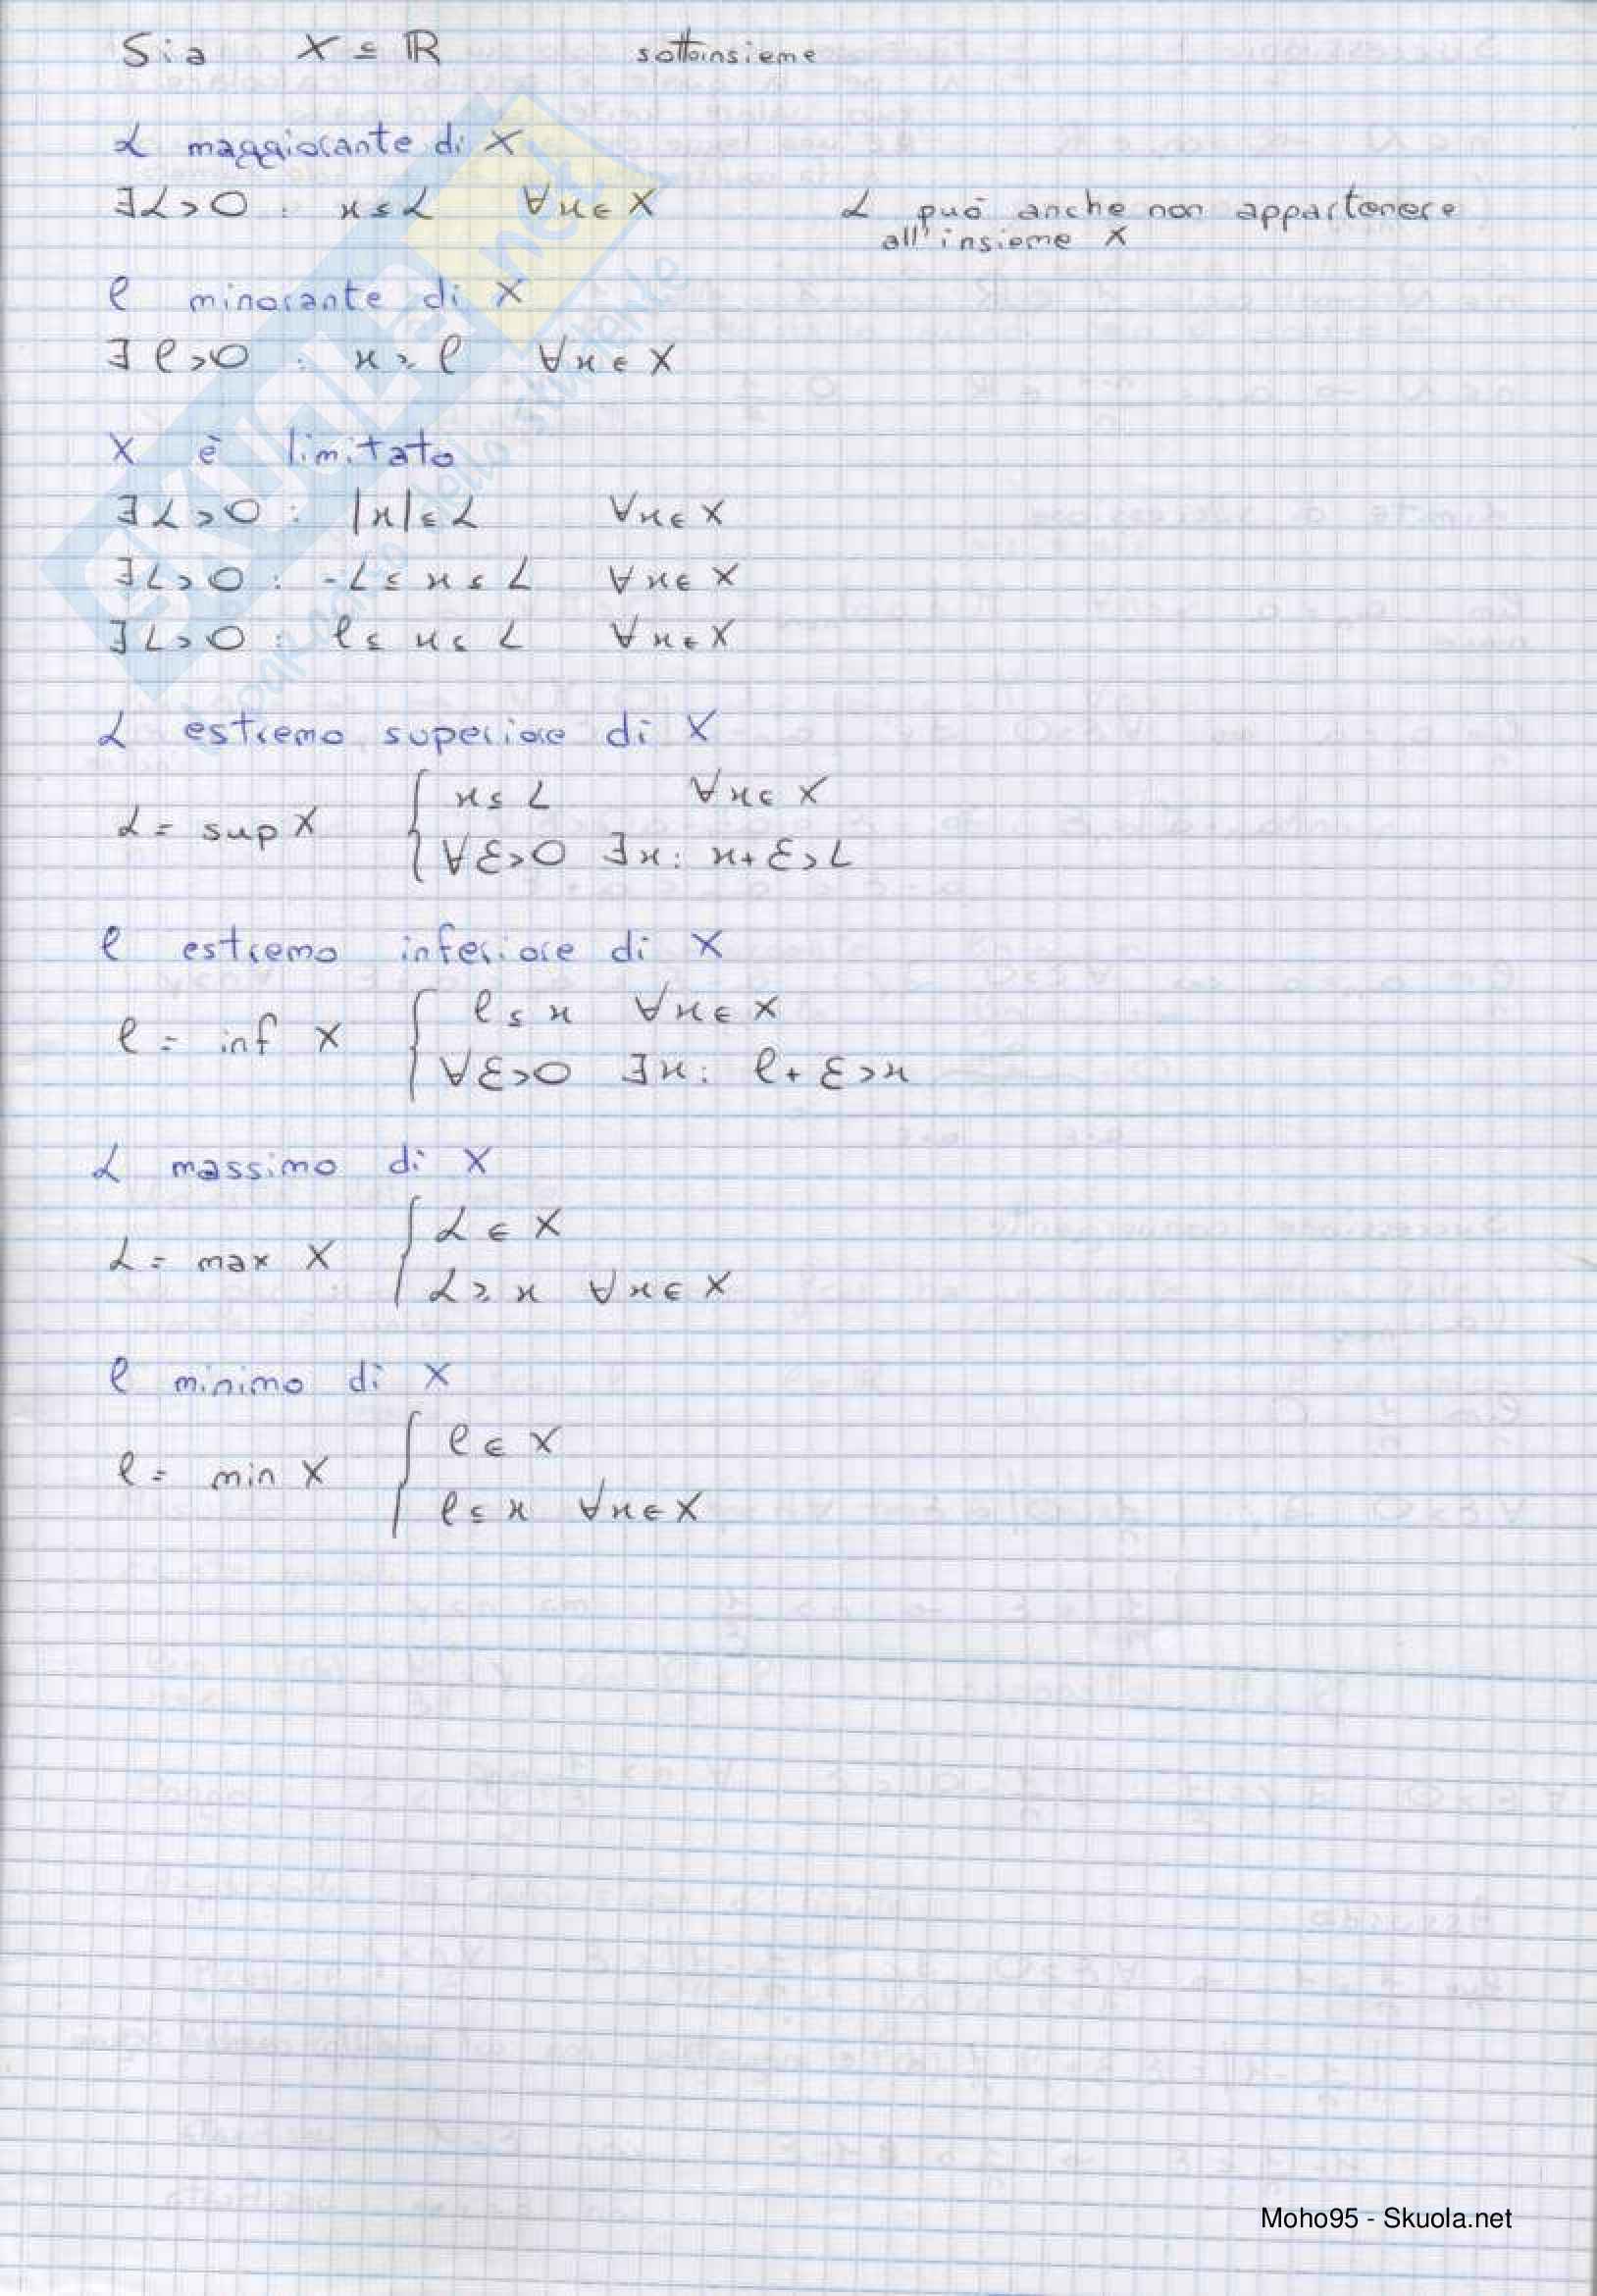 Sia X ⊆ ℝ sottoinsieme
L maggiorante di X
∃L>0 : x≤L ∀x∈X L può anche non appartenere
all'insieme X
l minorante di X
∃l>0 : x≥l ∀x∈X
X è limitato
∃L>0 : |x|≤L ∀x∈X
∃L>0 : -L≤x≤L ∀x∈X
∃L>0 : l≤x≤L ∀x∈X
L estremo superiore di X
L = sup X { x≤L ∀x∈X
∀ε>0 ∃x: x+ε>L
l estremo inferiore di X
l = inf X { l≤x ∀x∈X
∀ε>0 ∃x: l+ε>x
L massimo di X
L = max X { L∈X
L≥x ∀x∈X
l minimo di X
l = min X { l∈X
l≤x ∀x∈X
SKUOLA.net
Moho95 - Skuola.net